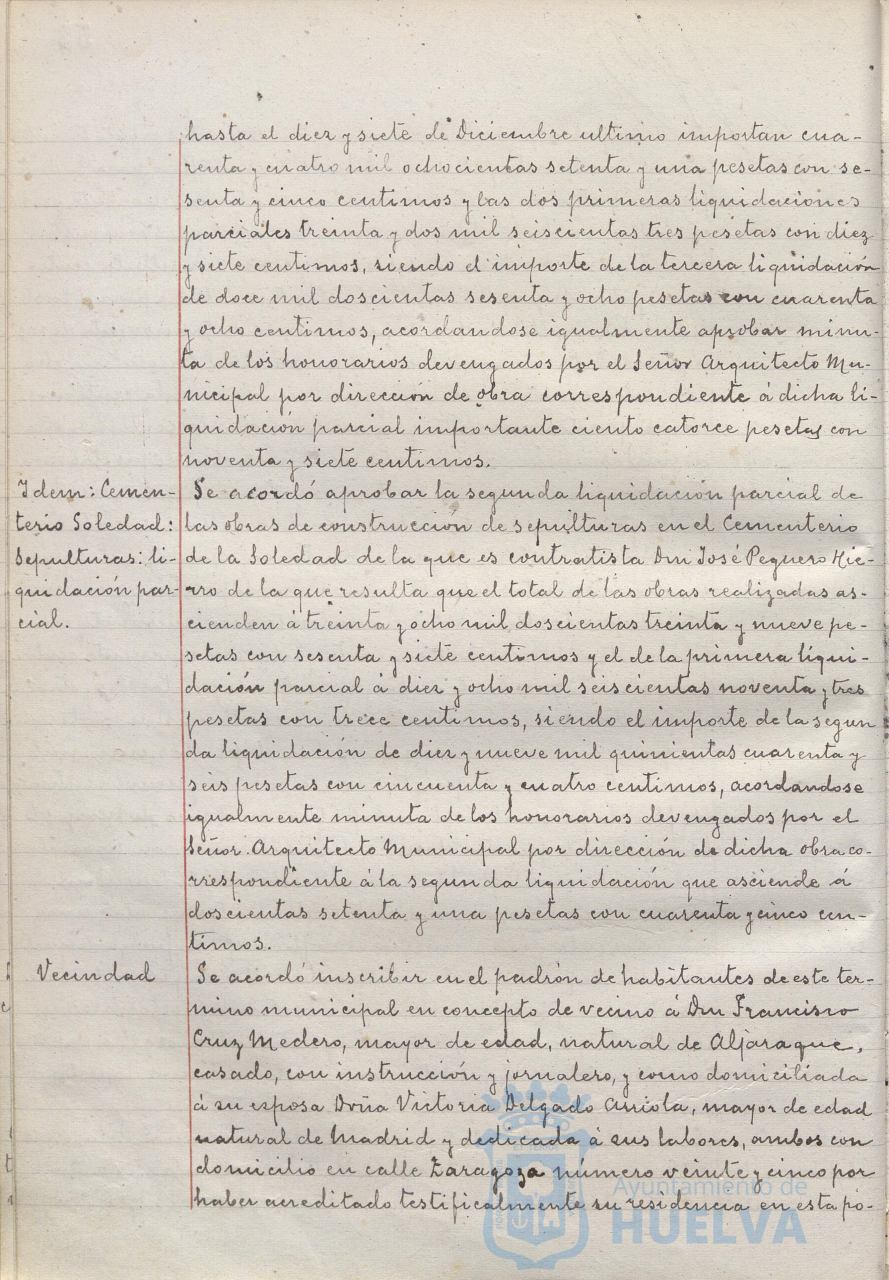 hasta el diez y siete de Diciembre ultimo importan cua-
renta y cuatro mil ochocientas setenta y una pesetas con se-
senta y cinco centimos y las dos primeras liquidaciones
parciales treinta y dos mil seiscientas tres pesetas con diez
y siete centimos, siendo el importe de la tercera liquidación
de doce mil doscientas sesenta y ocho pesetas con cuarenta
y ocho centimos, acordandose igualmente aprobar minu-
ta de los honorarios devengados por el Señor Arquitecto Mu-
nicipal por dirección de obra correspondiente á dicha li-
quidación parcial importante ciento catorce pesetas con
noventa y siete centimos.
Idem: Cemen-
terio Soledad:
sepulturas: li-
quidación par-
cial.
Se acordó aprobar la segunda liquidación parcial de
las obras de construcción de sepulturas en el Cementerio
de la Soledad de la que es contratista Don José Peguero Hie-
rro de la que resulta que el total de las obras realizadas as-
cienden á treinta y ocho mil doscientas treinta y nueve pe-
setas con sesenta y siete centimos y el de la primera liqui-
dación parcial á diez y ocho mil seiscientas noventa y tres
pesetas con trece centimos, siendo el importe de la segun
da liquidación de diez y nueve mil quinientas cuarenta y
seis pesetas con cincuenta y cuatro centimos, acordandose
igualmente minuta de los honorarios devengados por el
Señor Arquitecto Municipal por dirección de dicha obra co-
rrespondiente á la segunda liquidación que asciende á
doscientas setenta y una pesetas con cuarenta y cinco cen-
timos.
Vecindad
Se acordó inscribir en el padrón de habitantes de este ter-
mino municipal en concepto de vecino á Don Francisco
Cruz Medero, mayor de edad, natural de Aljaraque,
casado, con instrucción y jornalero, y como domiciliada
á su esposa Doña Victoria Delgado Arriola, mayor de edad
natural de Madrid y dedicada á sus labores, ambos con
domicilio en calle Zaragoza número veinte y cinco por
haber acreditado testificalmente su residencia en esta po-
Ayuntamiento de
HUELVA